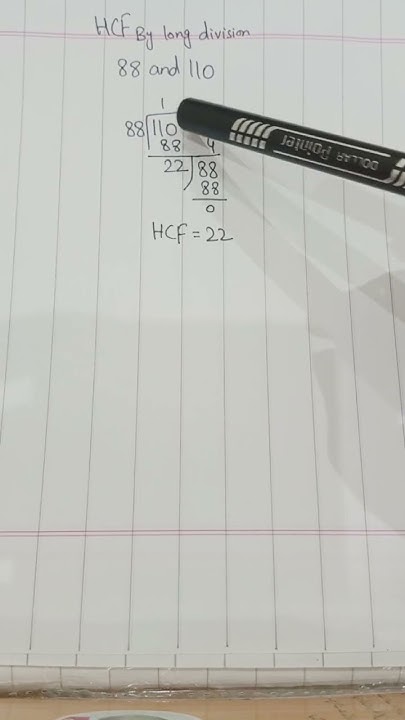 HCF By long division
88 and 110
1
88 110
88 4
22 88
88
0
HCF = 22
DOLLAR Pointer